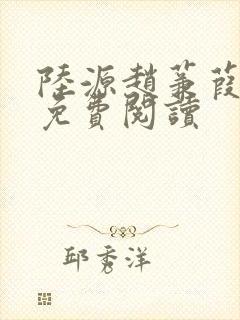 陸源趙蒹葭
免費閱讀
邱秀洋